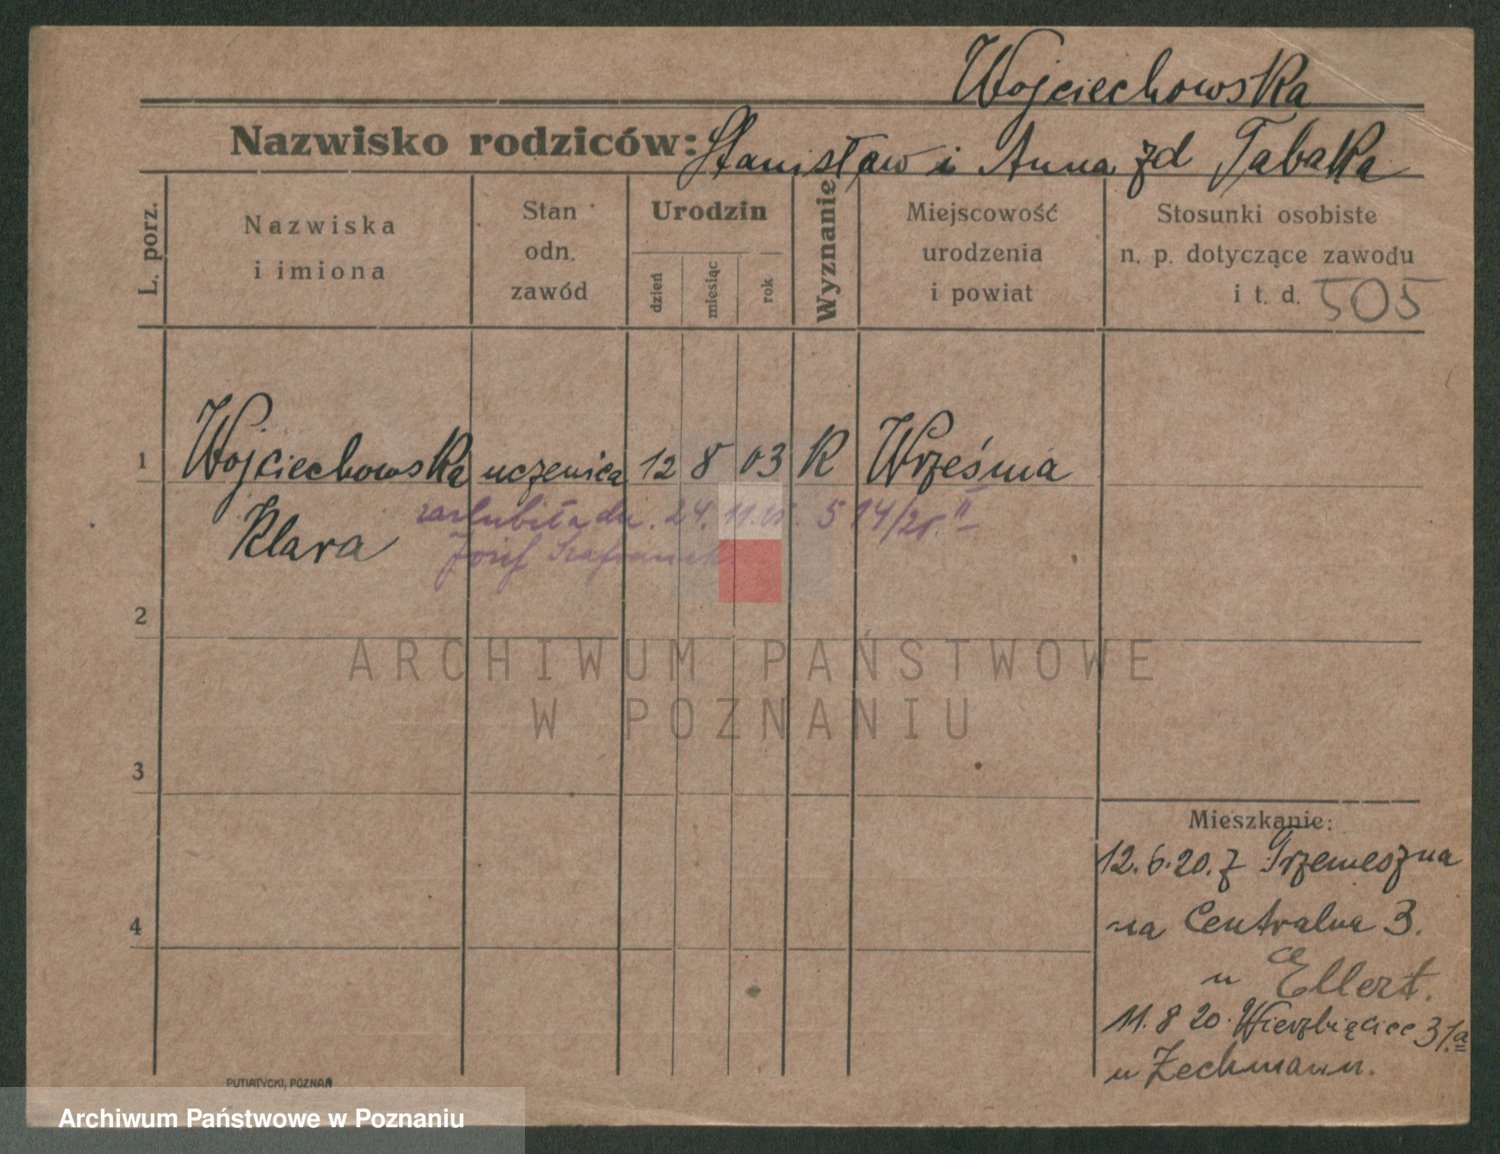 Wojciechowska
Nazwisko rodziców: Stanisław i Anna zd Tabaka
L. porz.
Nazwiska
i imiona
Stan
odn.
zawód
Urodzin
dzień
miesiąc
rok
Wyznanie
Miejscowość
urodzenia
i powiat
Stosunki osobiste
n. p. dotyczące zawodu
i t. d. 505
1 Wojciechowska uczenica 12 8 03 K Wrześma
Klara
zaślubiła dn. 24. 11. 25. 514/25. II
Józef Szafraniak
2
ARCHIWUM PAŃSTWOWE
W POZNANIU
3
4
Mieszkanie:
12.6.20. z Trzemeszna
na Centralna 3.
u Ellert.
11.8 20. Wierzbięcice 31.a
u Zechmann.
PUTIATYCKI, POZNAŃ
Archiwum Państwowe w Poznaniu